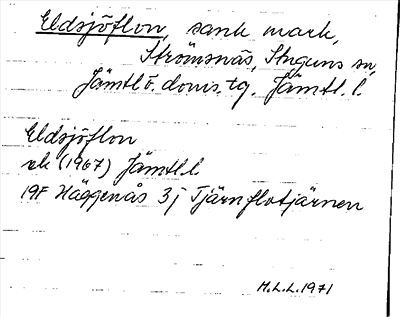 Eldsjöflon, sank mark,
Strömsnäs, Stuguns sn,
Jämtl ö. doms. tg. Jämtl. l.
Eldsjöflon
ek (1967) Jämtl. l.
19F Häggenås 3j Tjärnflotjärnen
M.L.L. 1971